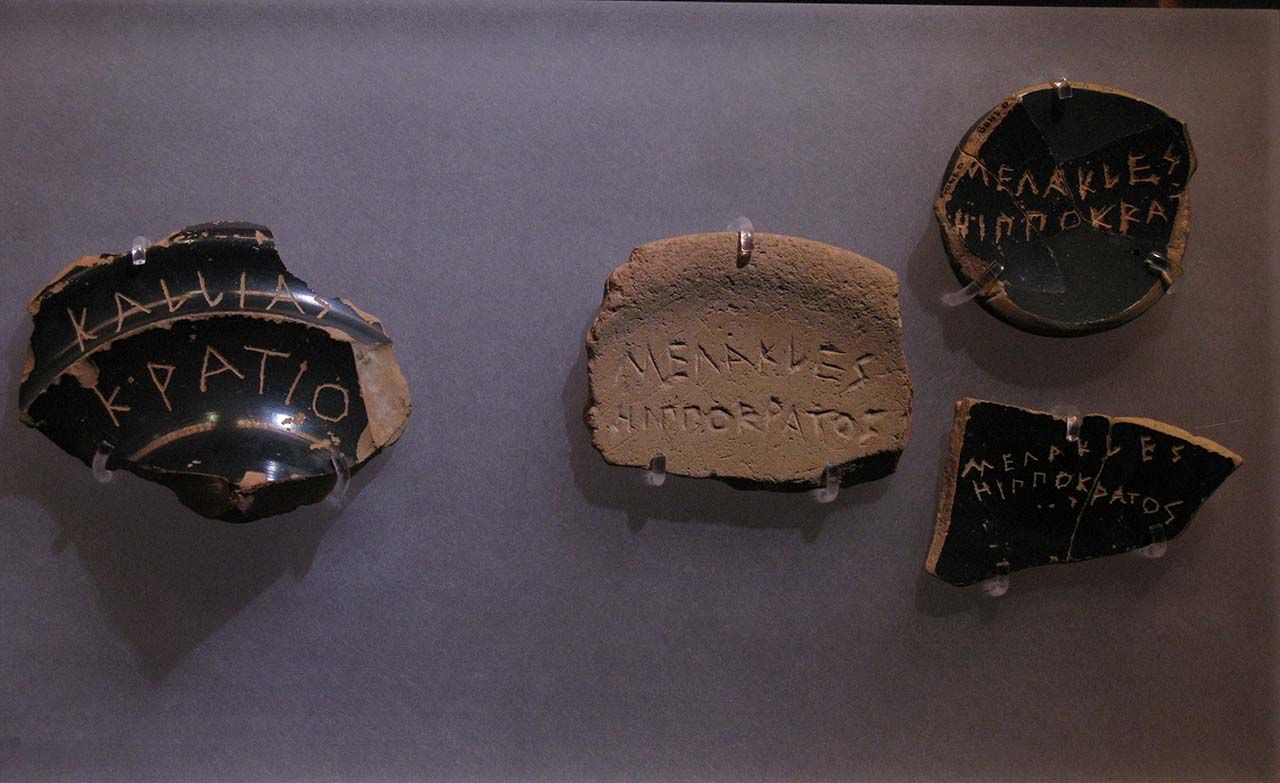 ΚΑLLΙΑS
ΚΡΑΤΙΟ
ΜΕΛΑΚLΕS
ΗΙΠΠΟΚΡΑΤΟS
ΜΕΛΑΚLΕS
ΗΙΠΠΟΚΡΑ
ΜΕΛΑΚLΕS
ΗΙΠΠΟΚΡΑΤΟS